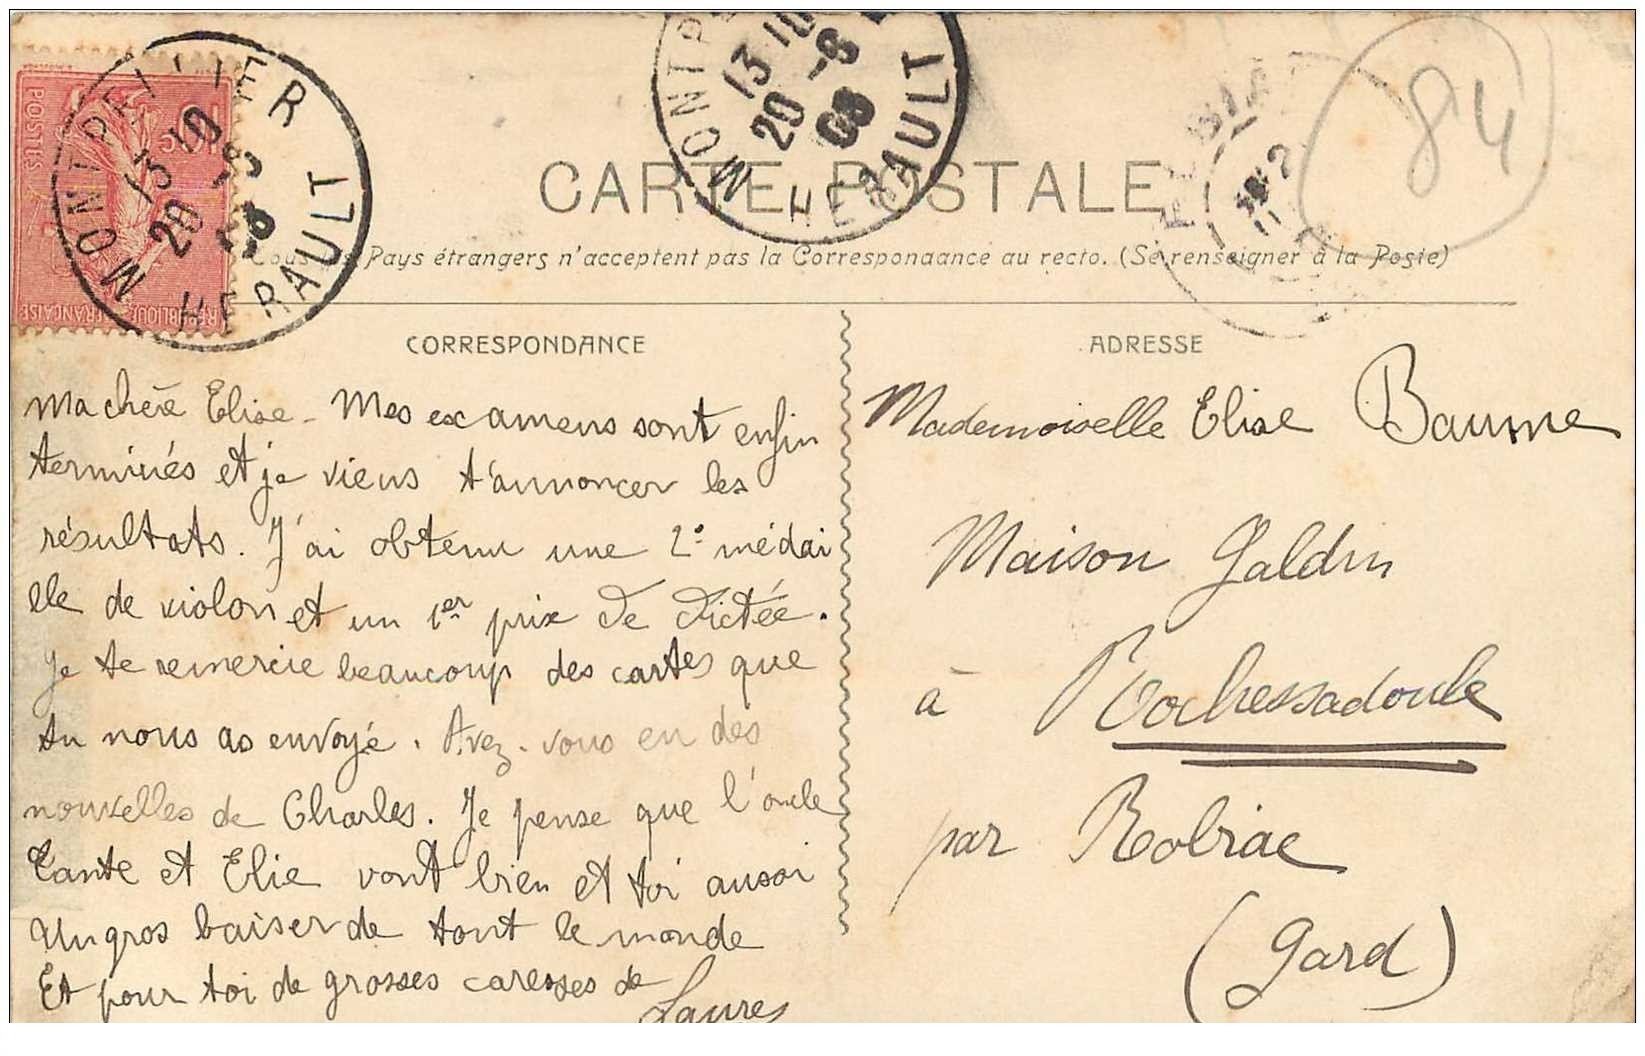 MONTPELLIER
13 10
20 -8
08
HERAULT
MONTP
13 10
20 -8
08
HERAULT
84
POSTES
REPUBLIQUE FRANÇAISE
CARTE POSTALE
Tous les Pays étrangers n'acceptent pas la Correspondance au recto. (Se renseigner à la Poste)
CORRESPONDANCE
Ma chère Elise - Mes examens sont enfin
terminés et je viens t'annoncer les
résultats. J'ai obtenu une 2e médai
lle de violon et un 1er prix de dictée.
Je te remercie beaucoup des cartes que
tu nous as envoyé. Avez-vous eu des
nouvelles de Charles. Je pense que l'oncle
tante et Elie vont bien et toi aussi
Un gros baiser de tout le monde
Et pour toi de grosses caresses de
ADRESSE
Mademoiselle Elise Baume
Maison Galdin
à Rochessadoule
par Robiac
(Gard)